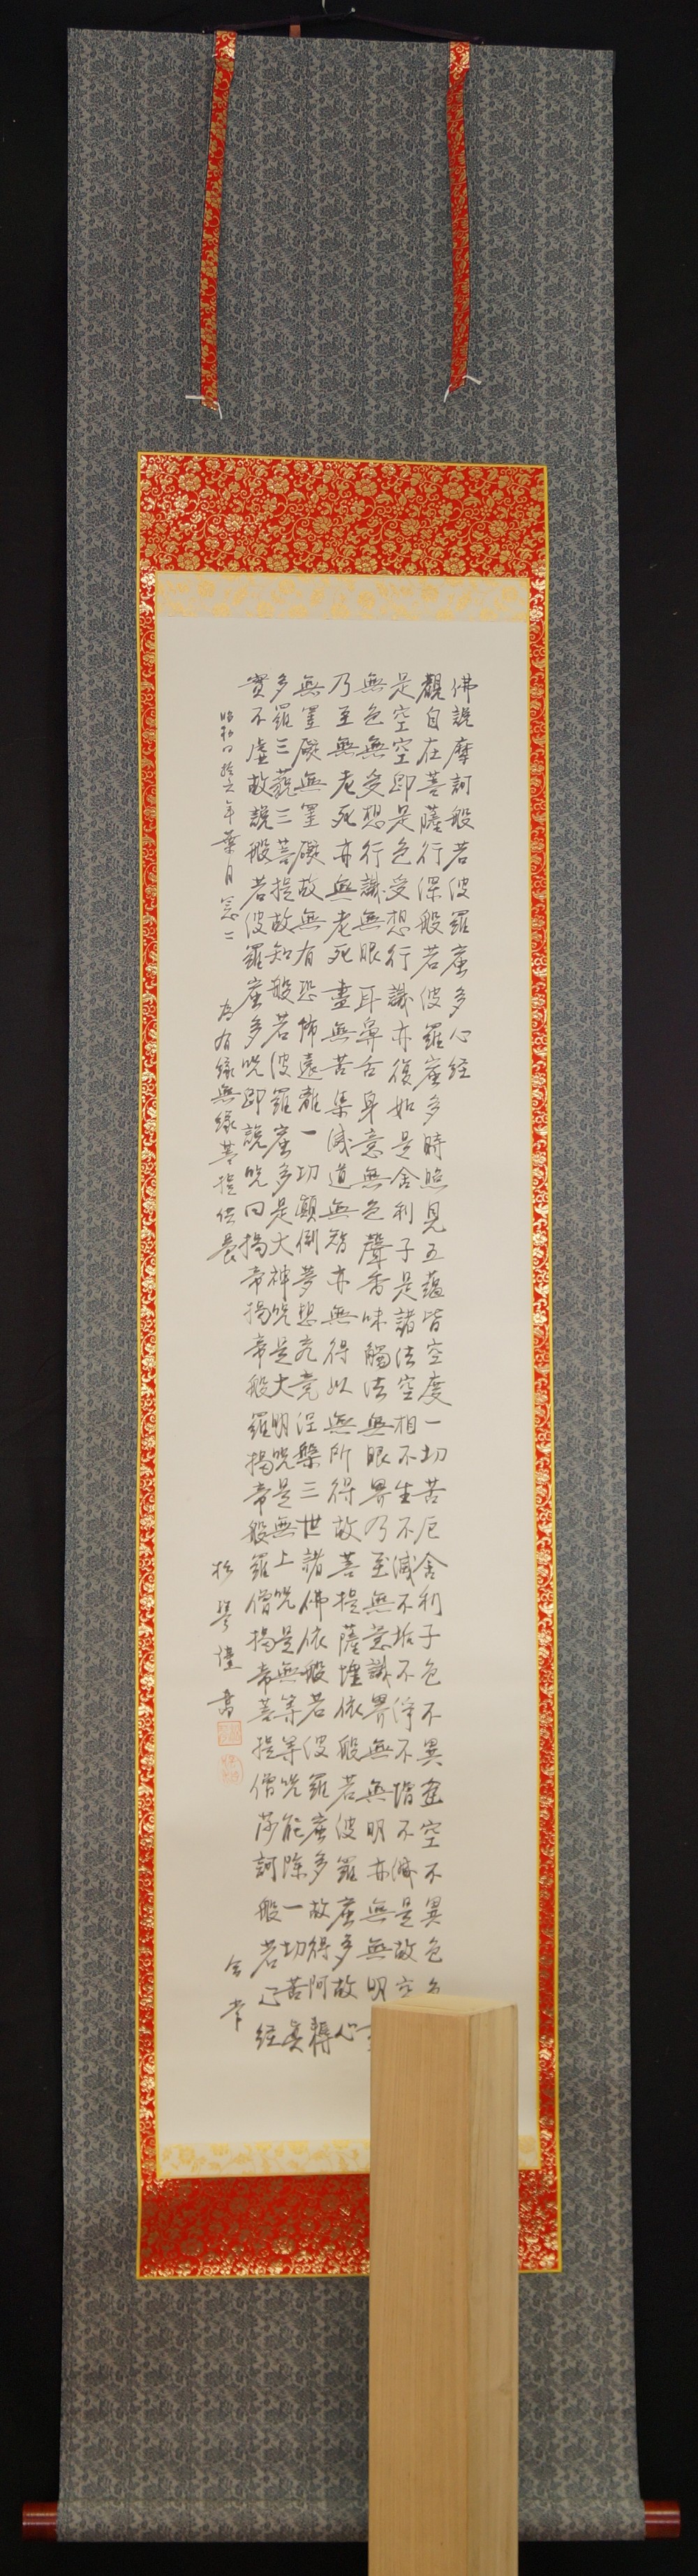 佛説摩訶般若波羅蜜多心経
觀自在菩薩行深般若波羅蜜多時照見五蘊皆空度一切苦厄舍利子色不異空空不異色
是空空即是色受想行識亦復如是舍利子是諸法空相不生不滅不垢不淨不増不減是故空
無色無受想行識無眼耳鼻舌身意無色聲香味觸法無眼界乃至無意識界無無明亦無無明
乃至無老死亦無老死盡無苦集滅道無智亦無得以無所得故菩提薩埵依般若波羅蜜多故心
無罣礙無罣礙故無有恐怖遠離一切顛倒夢想究竟涅槃三世諸佛依般若波羅蜜多故得阿耨
多羅三藐三菩提故知般若波羅蜜多是大神咒是大明咒是無上咒是無等等咒能除一切苦真
實不虚故説般若波羅蜜多咒即説咒曰揭帝揭帝般羅揭帝般羅僧揭帝菩提僧莎訶般若心経
昭和四拾六年葉月 為有縁無縁菩提供養 謹書 合掌